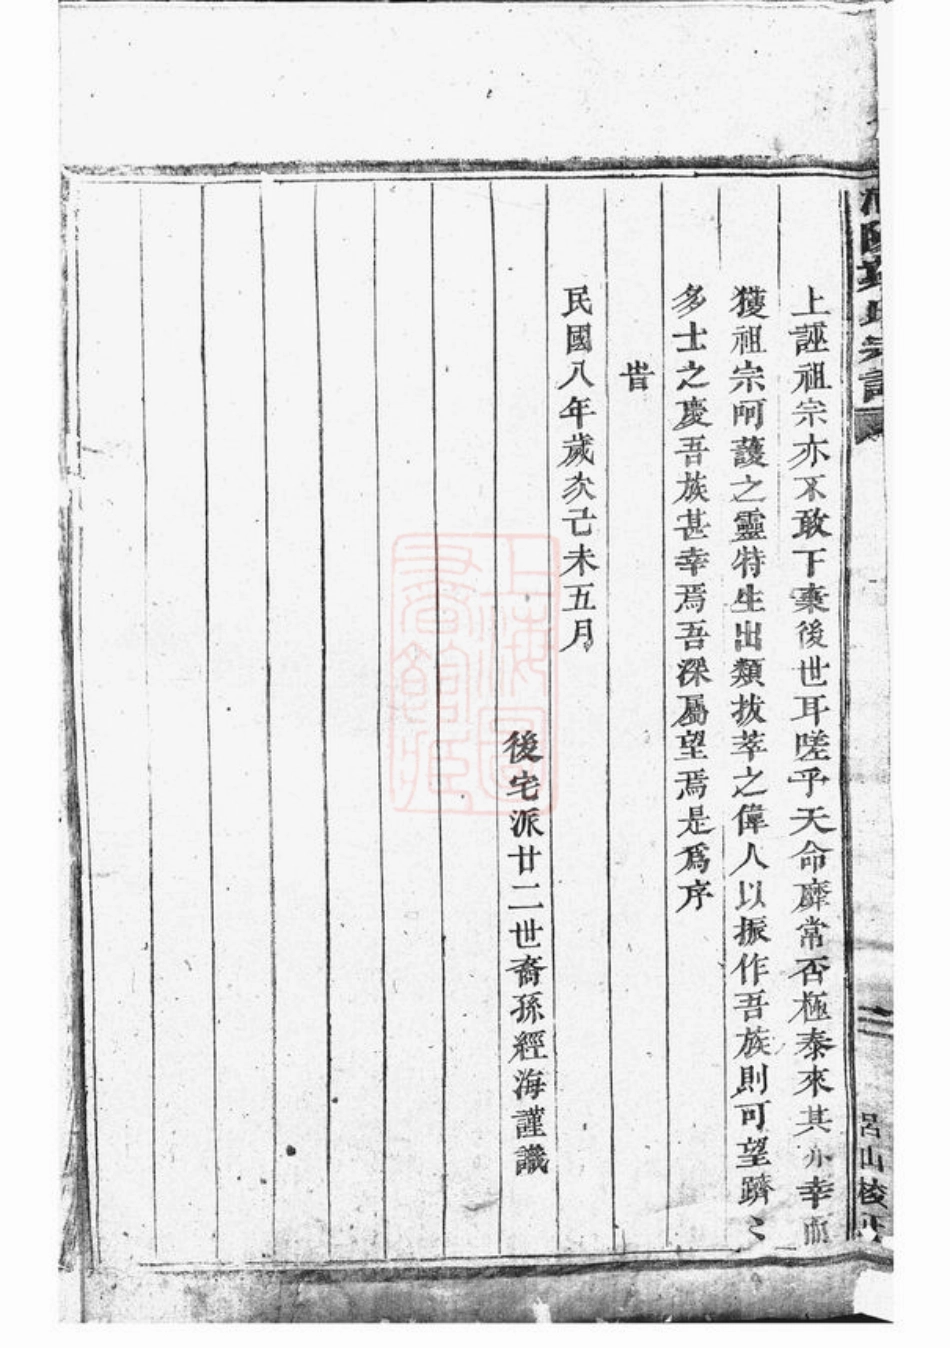 上誣祖宗亦不敢下棄後世耳嗟乎天命靡常否極泰來其亦幸而
獲祖宗呵護之靈特生出類拔萃之偉人以振作吾族則可望躋〻
多士之慶吾族甚幸焉吾深屬望焉是爲序
旹
民國八年歲次己未五月
後宅派廿二世裔孫經海謹識
呂山校正
上海圖書館藏